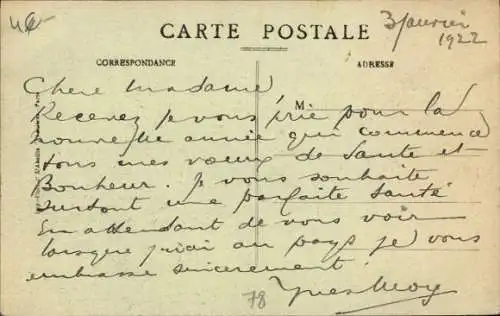 CARTE POSTALE
3 janvier
1922
CORRESPONDANCE
ADRESSE
Chere Madame
M
Recevez je vous prie pour la
nouvelle année qui commence
tous mes vœux de Santé et
Bonheur. Je vous souhaite
surtout une parfaite Santé
En attendant de vous voir
lorsque j'irai au pays je vous
embrasse sincerement.
Yves
78